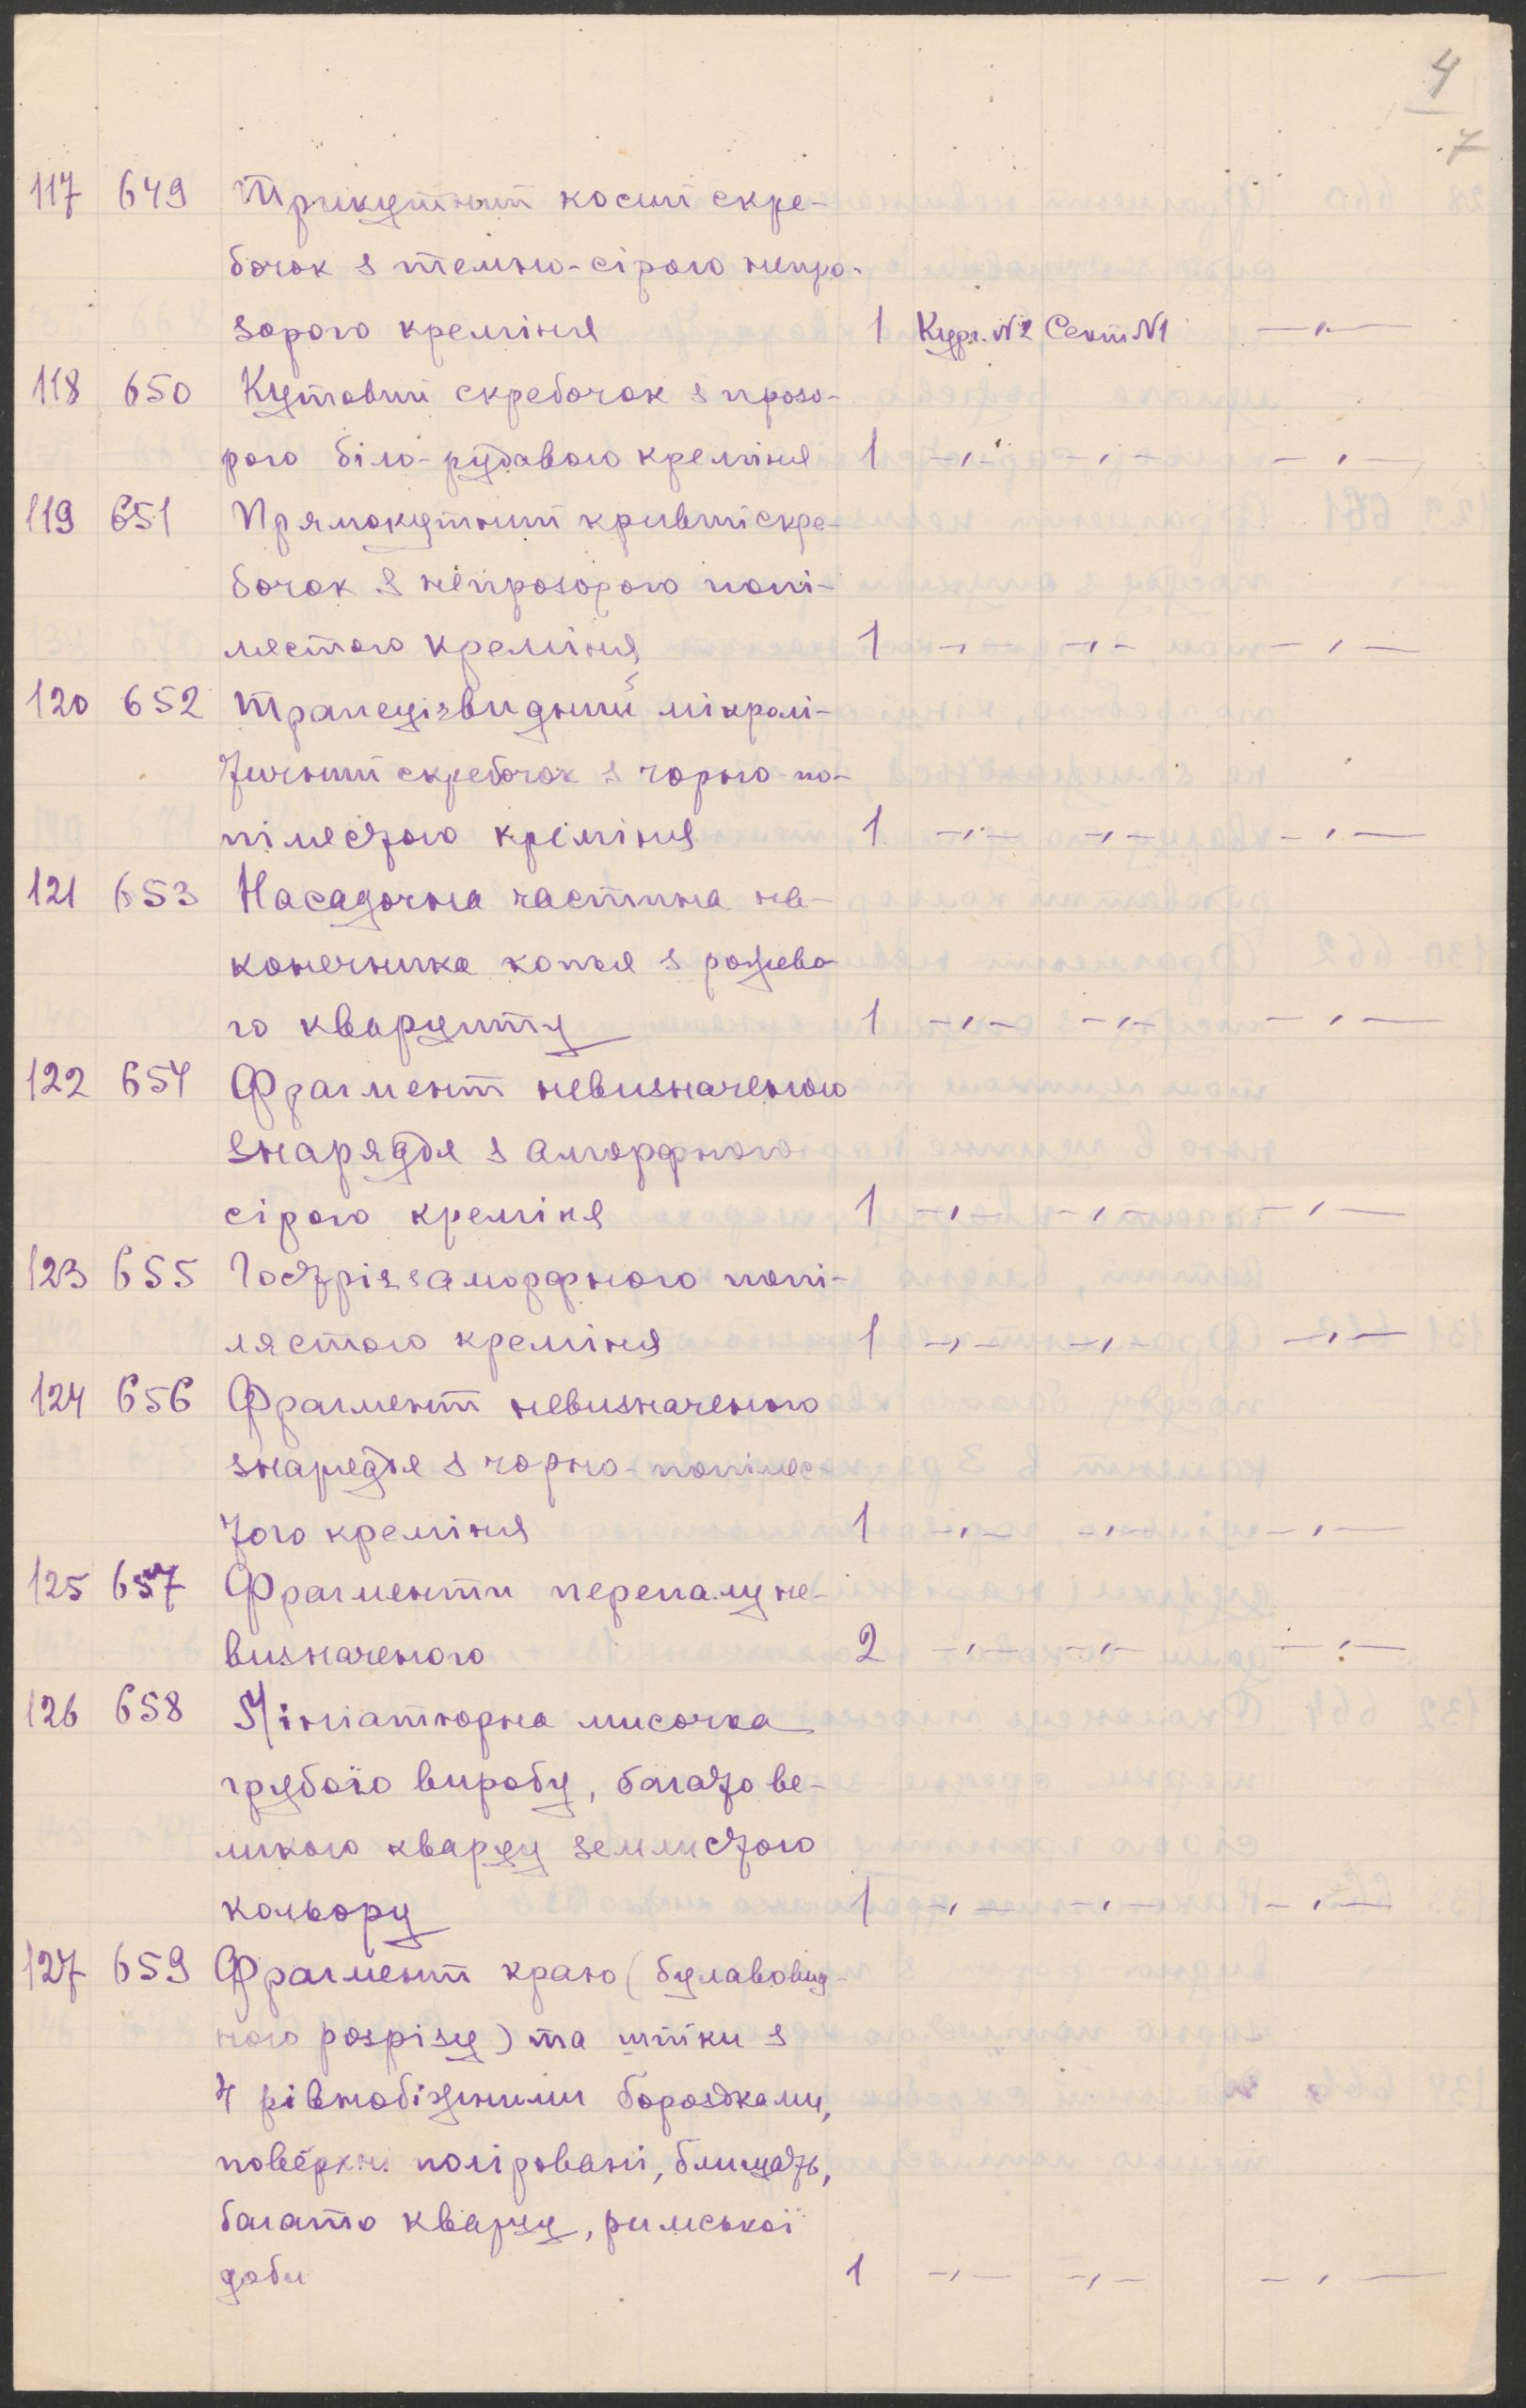 4
7
117 649 Трикутний косий скре-
бочок з темно-сірого непро-
зорого креміня 1 Кург. №2 Сект №1 —„—
118 650 Кутовий скребочок з прозо-
рого біло-рудавого креміня 1 —„— —„— —„—
119 651 Прямокутний кривий скре-
бочок з непрозорого попі-
лястого креміня 1 —„— —„— —„—
120 652 Трапеціевидний мікролі-
тичний скребочок з чорно-по-
пілястого креміня 1 —„— —„— —„—
121 653 Насадочна частина на-
конечника копья з рожево-
го кварциту 1 —„— —„— —„—
122 654 Фрагмент невизначеного
знаряддя з аморфного
сірого креміня 1 —„— —„— —„—
123 655 Гострія з аморфного попі-
лястого креміня 1 —„— —„— —„—
124 656 Фрагмент невизначеного
знаряддя з чорно-попіляс-
того креміня 1 —„— —„— —„—
125 657 Фрагменти перепалу не-
визначеного 2 —„— —„— —„—
126 658 Мініатюрна мисочка
грубого виробу, багато ве-
ликого кварцу землистого
кольору 1 —„— —„— —„—
127 659 Фрагмент краю (булавовид-
ного розрізу) та шийки з
4 рівнобіжними бороздками,
поверхні поліровані, блищать,
багато кварцу, римської
доби 1 —„— —„— —„—